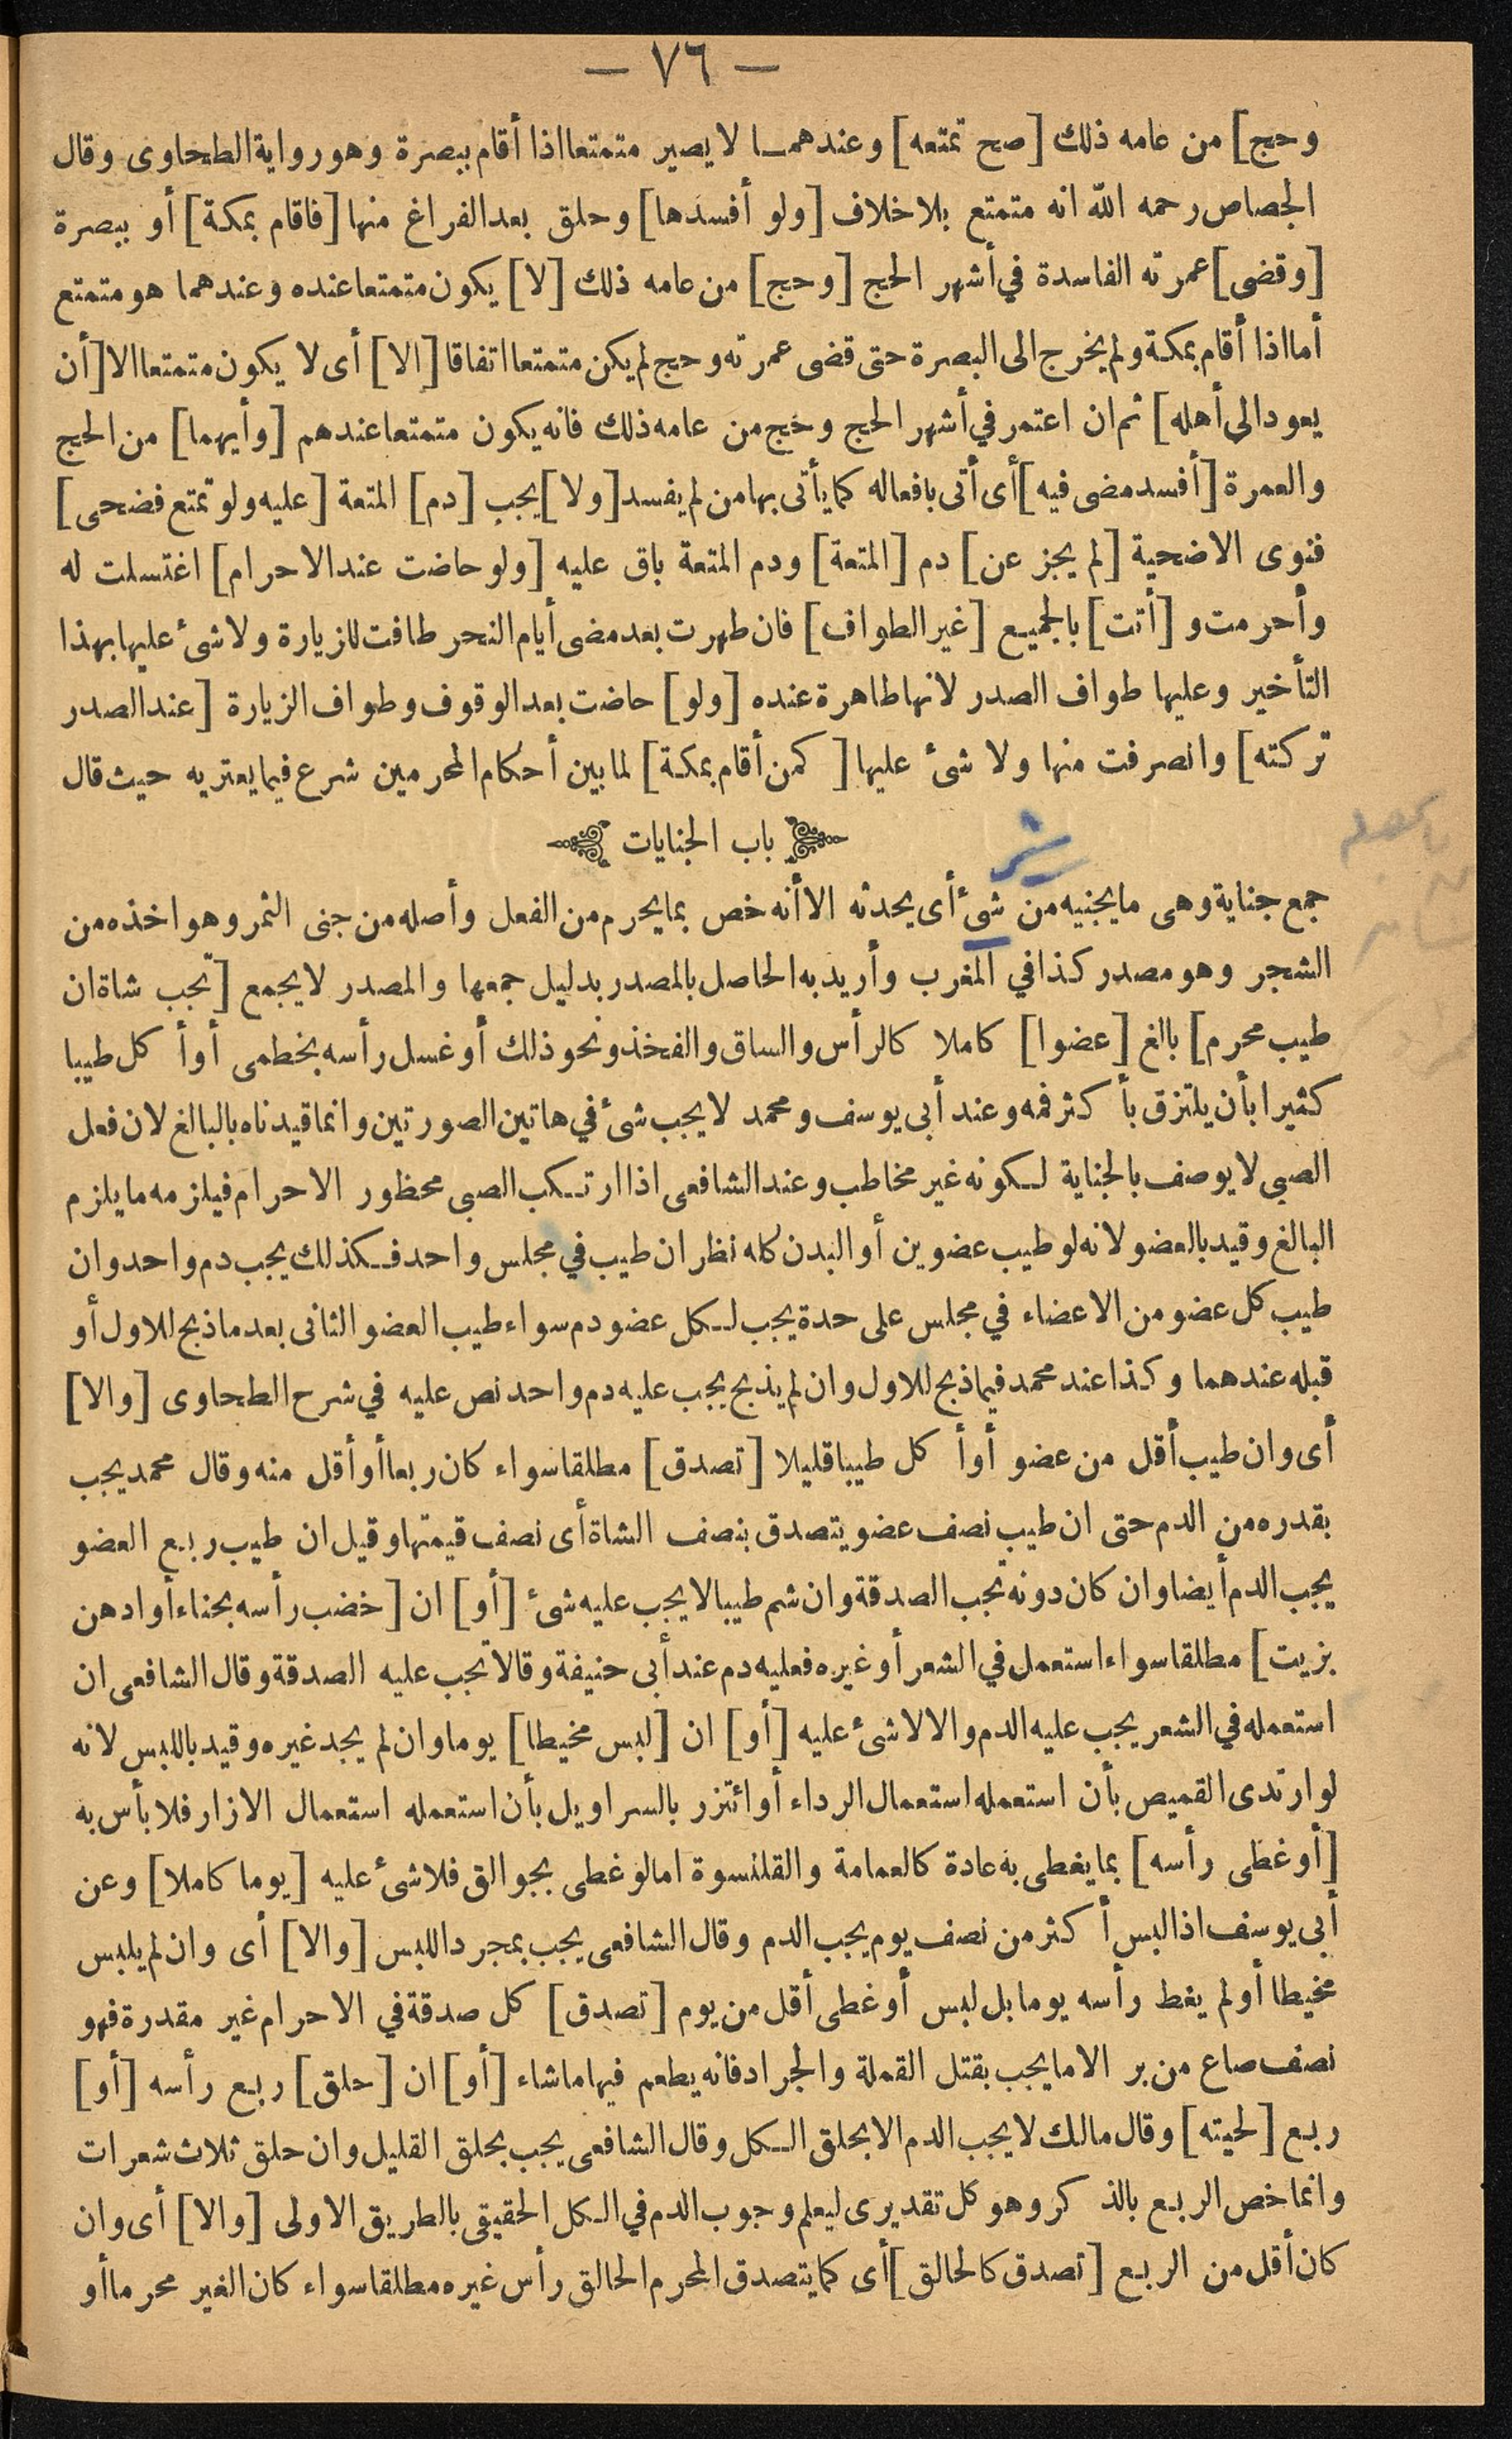 — ٧٦ —
وحج] من عامه ذلك [صح تمتعه] وعندهمـا لا يصير متمتعا اذا أقام ببصرة وهو رواية الطحاوى وقال
الجصاص رحمه الله انه متمتع بلا خلاف [ولو أفسدها] وحلق بعد الفراغ منها [فاقام بمكة] أو ببصرة
[وقضى] عمرته الفاسدة في أشهر الحج [وحج] من عامه ذلك [لا] يكون متمتعا عنده وعندهما هو متمتع
أما اذا أقام بمكة ولم يخرج الى البصرة حتى قضى عمرته وحج لم يكن متمتعا اتفاقا [الا] أى لا يكون متمتعا الا [أن
يعود الى أهله] ثم ان اعتمر في أشهر الحج وحج من عامه ذلك فانه يكون متمتعا عندهم [وأيهما] من الحج
والعمرة [أفسد مضى فيه] أى أتى بافعاله كما يأتى بها من لم يفسد [ولا] يجب [دم] المتعة [عليه ولو تمتع فضحى]
فنوى الاضحية [لم يجز عن] دم [المتعة] ودم المتعة باق عليه [ولو حاضت عند الاحرام] اغتسلت له
وأحرمت و [أتت] بالجميع [غير الطواف] فان طهرت بعد مضى أيام النحر طافت للزيارة ولا شئ عليها بهذا
التأخير وعليها طواف الصدر لانها طاهرة عنده [ولو] حاضت بعد الوقوف وطواف الزيارة [عند الصدر
تركته] وانصرفت منها ولا شئ عليها [كمن أقام بمكة] لما بين أحكام المحرمين شرع فيما يعتريه حيث قال
باب الجنايات
جمع جناية وهى ما يجنيه من شئ أى يحدثه الا أنه خص بما يحرم من الفعل وأصله من جنى الثمر وهو اخذه من
الشجر وهو مصدر كذا في المغرب وأريد به الحاصل بالمصدر بدليل جمعها والمصدر لا يجمع [تجب شاة ان
طيب محرم] بالغ [عضوا] كاملا كالرأس والساق والفخذ ونحو ذلك أو غسل رأسه بخطمى أو أكل طيبا
كثيرا بأن يلتزق بأكثر فمه وعند أبى يوسف ومحمد لا يجب شئ في هاتين الصورتين وانما قيدناه بالبالغ لان فعل
الصبى لا يوصف بالجناية لـكونه غير مخاطب وعند الشافعى اذا ارتـكب الصبى محظور الاحرام فيلزمه ما يلزم
البالغ وقيد بالعضو لانه لو طيب عضوين أو البدن كله نظر ان طيب في مجلس واحد فـكذلك يجب دم واحد وان
طيب كل عضو من الاعضاء في مجلس على حدة يجب لـكل عضو دم سواء طيب العضو الثانى بعد ما ذبح للاول أو
قبله عندهما وكذا عند محمد فيما ذبح للاول وان لم يذبح يجب عليه دم واحد نص عليه في شرح الطحاوى [والا]
أى وان طيب أقل من عضو أو أكل طيبا قليلا [تصدق] مطلقا سواء كان ربعا أو أقل منه وقال محمد يجب
بقدره من الدم حتى ان طيب نصف عضو يتصدق بنصف الشاة أى نصف قيمتها وقيل ان طيب ربع العضو
يجب الدم أيضا وان كان دونه تجب الصدقة وان شم طيبا لا يجب عليه شئ [أو] ان [خضب رأسه بحناء أو ادهن
بزيت] مطلقا سواء استعمل في الشعر أو غيره فعليه دم عند أبى حنيفة وقالا تجب عليه الصدقة وقال الشافعى ان
استعمله في الشعر يجب عليه الدم والا لا شئ عليه [أو] ان [لبس مخيطا] يوما وان لم يجد غيره وقيد باللبس لانه
لو ارتدى القميص بأن استعمله استعمال الرداء أو ائتزر بالسراويل بأن استعمله استعمال الازار فلا بأس به
[أو غطى رأسه] بما يغطى به عادة كالعمامة والقلنسوة اما لو غطى بجوالق فلا شئ عليه [يوما كاملا] وعن
أبى يوسف اذا لبس أكثر من نصف يوم يجب الدم وقال الشافعى يجب بمجرد اللبس [والا] أى وان لم يلبس
مخيطا أو لم يغط رأسه يوما بل لبس أو غطى أقل من يوم [تصدق] كل صدقة في الاحرام غير مقدرة فهو
نصف صاع من بر الا ما يجب بقتل القملة والجراد فانه يطعم فيها ما شاء [أو] ان [حلق] ربع رأسه [أو]
ربع [لحيته] وقال مالك لا يجب الدم الا بحلق الـكل وقال الشافعى يجب بحلق القليل وان حلق ثلاث شعرات
وانما خص الربع بالذكر وهو كل تقديرى ليعلم وجوب الدم في الـكل الحقيقى بالطريق الاولى [والا] أى وان
كان أقل من الربع [تصدق كالحالق] أى كما يتصدق المحرم الحالق رأس غيره مطلقا سواء كان الغير محرما أو